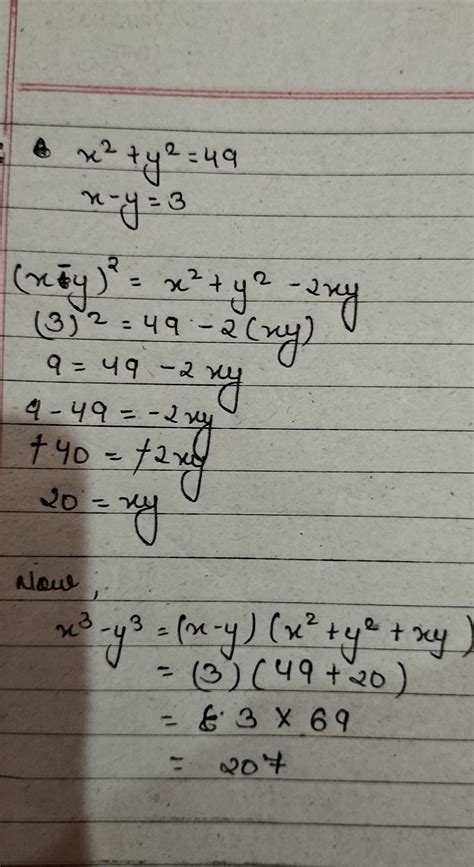 x² + y² = 49
x - y = 3
(x - y)² = x² + y² - 2xy
(3)² = 49 - 2(xy)
9 = 49 - 2xy
9 - 49 = -2xy
+40 = +2xy
20 = xy
Now,
x³ - y³ = (x - y) (x² + y² + xy)
= (3) (49 + 20)
= 3 × 69
= 207